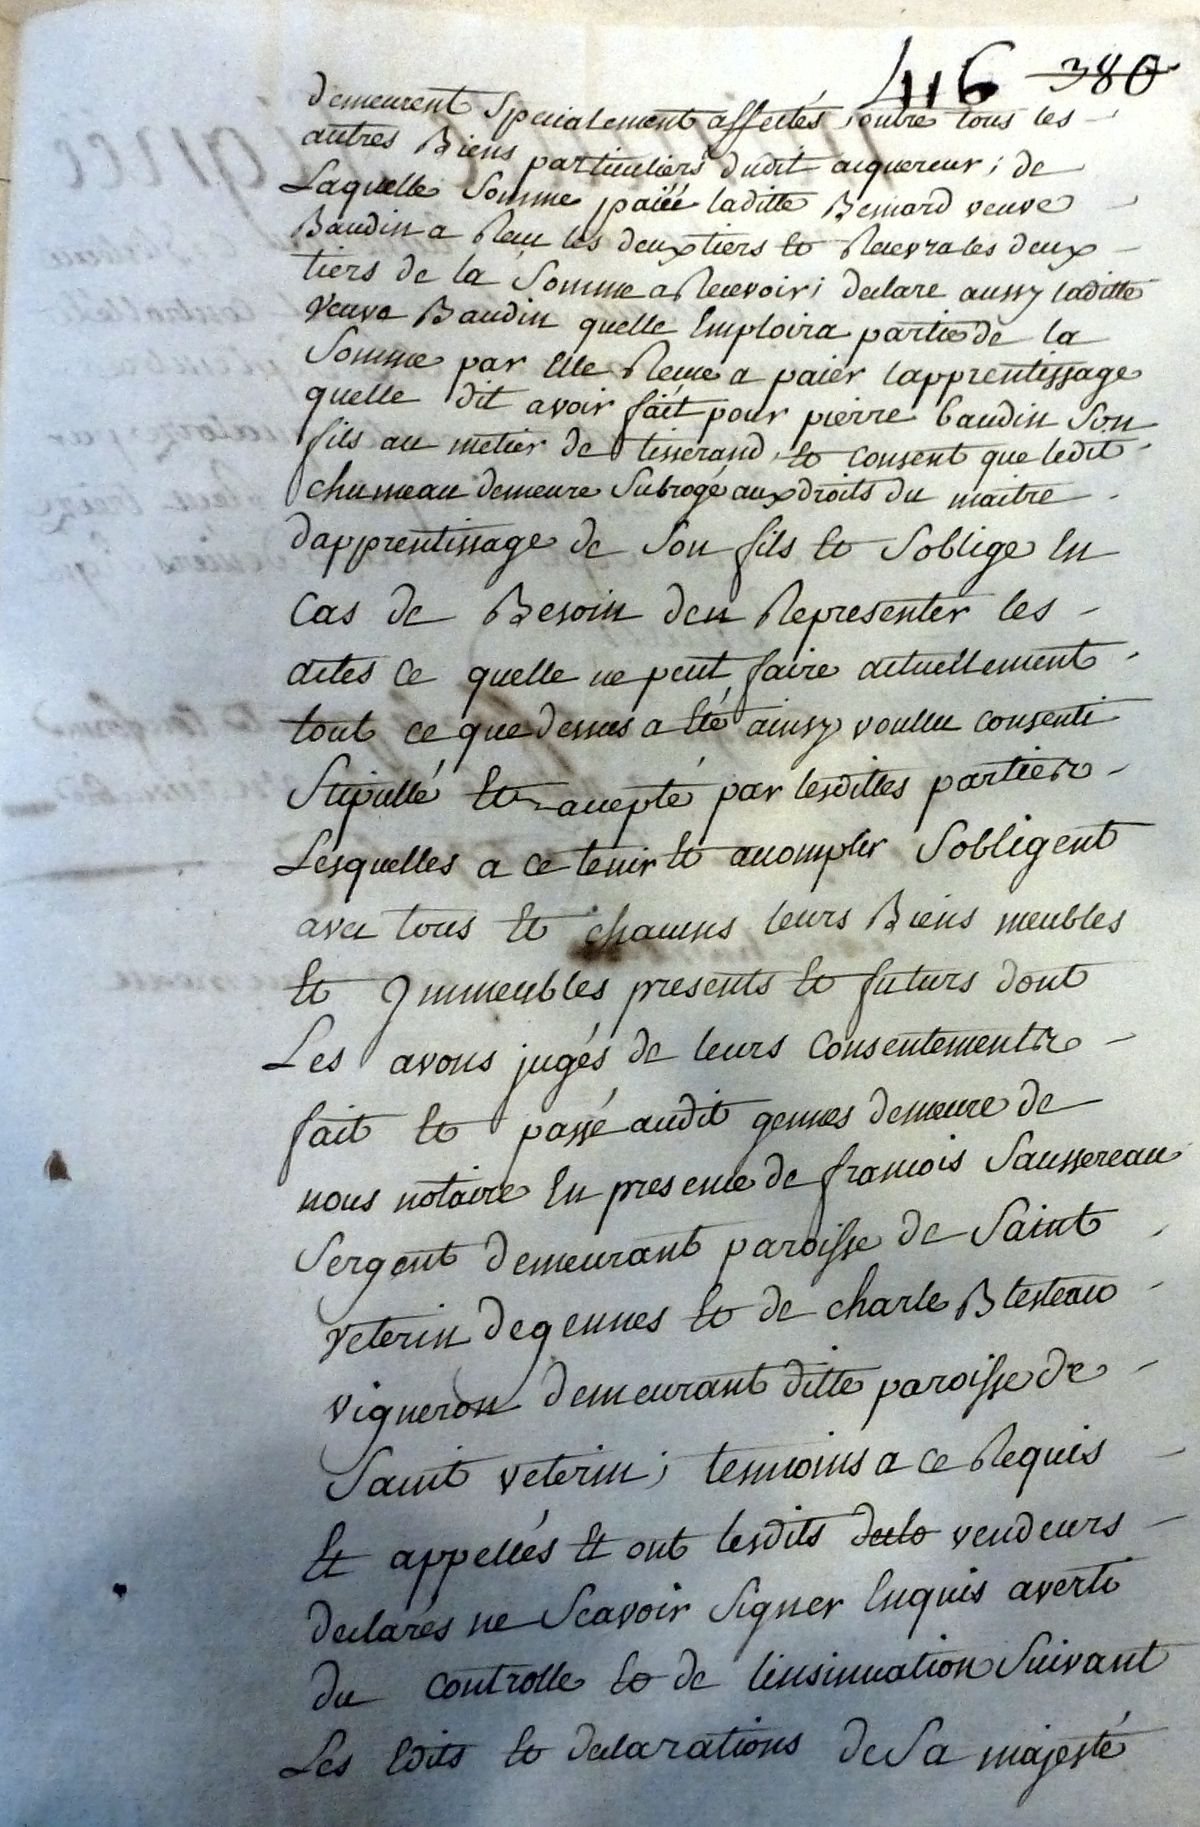 416 380
demeurent Specialement affectés, outre tous les
autres Biens particuliers dudit acquereur; de
Laquelle Somme paiée laditte Bernard veuve
Baudin a Recu les deux tiers et Recevra les deux
tiers de la Somme a Recevoir; declare aussy laditte
Veuve Baudin quelle Emploira partie de la
Somme par Elle Recue a paier lapprentissage
quelle dit avoir fait pour pierre baudin Son
fils au metier de tisserand, et consent que ledit
chumeau demeure Subrogé aux droits du maitre
dapprentissage de Son fils et Soblige En
Cas de Besoin den Representer les
actes ce quelle ne peut faire actuellement
tout ce que dessus a Eté ainsy voullu consenti
Stipullé et accepté par lesdittes parties
Lesquelles a ce tenir et accomplir Sobligent
avec tous et chacuns leurs Biens meubles
et Immeubles presents et futurs dont
Les avons jugés de leurs Consentements
fait et passé audit gennes demeure de
nous notaire En presence de francois Saussereau
Sergent demeurant paroisse de Saint
Veterin de gennes et de charle Blesteau
vigneron demeurant ditte paroisse de
Saint veterin; temoins a ce Requis
Et appellés Et ont lesdits vendeurs
declarés ne Scavoir Signer Enquis averti
du controlle et de linsinuation Suivant
Les Edits et declarations de Sa majesté